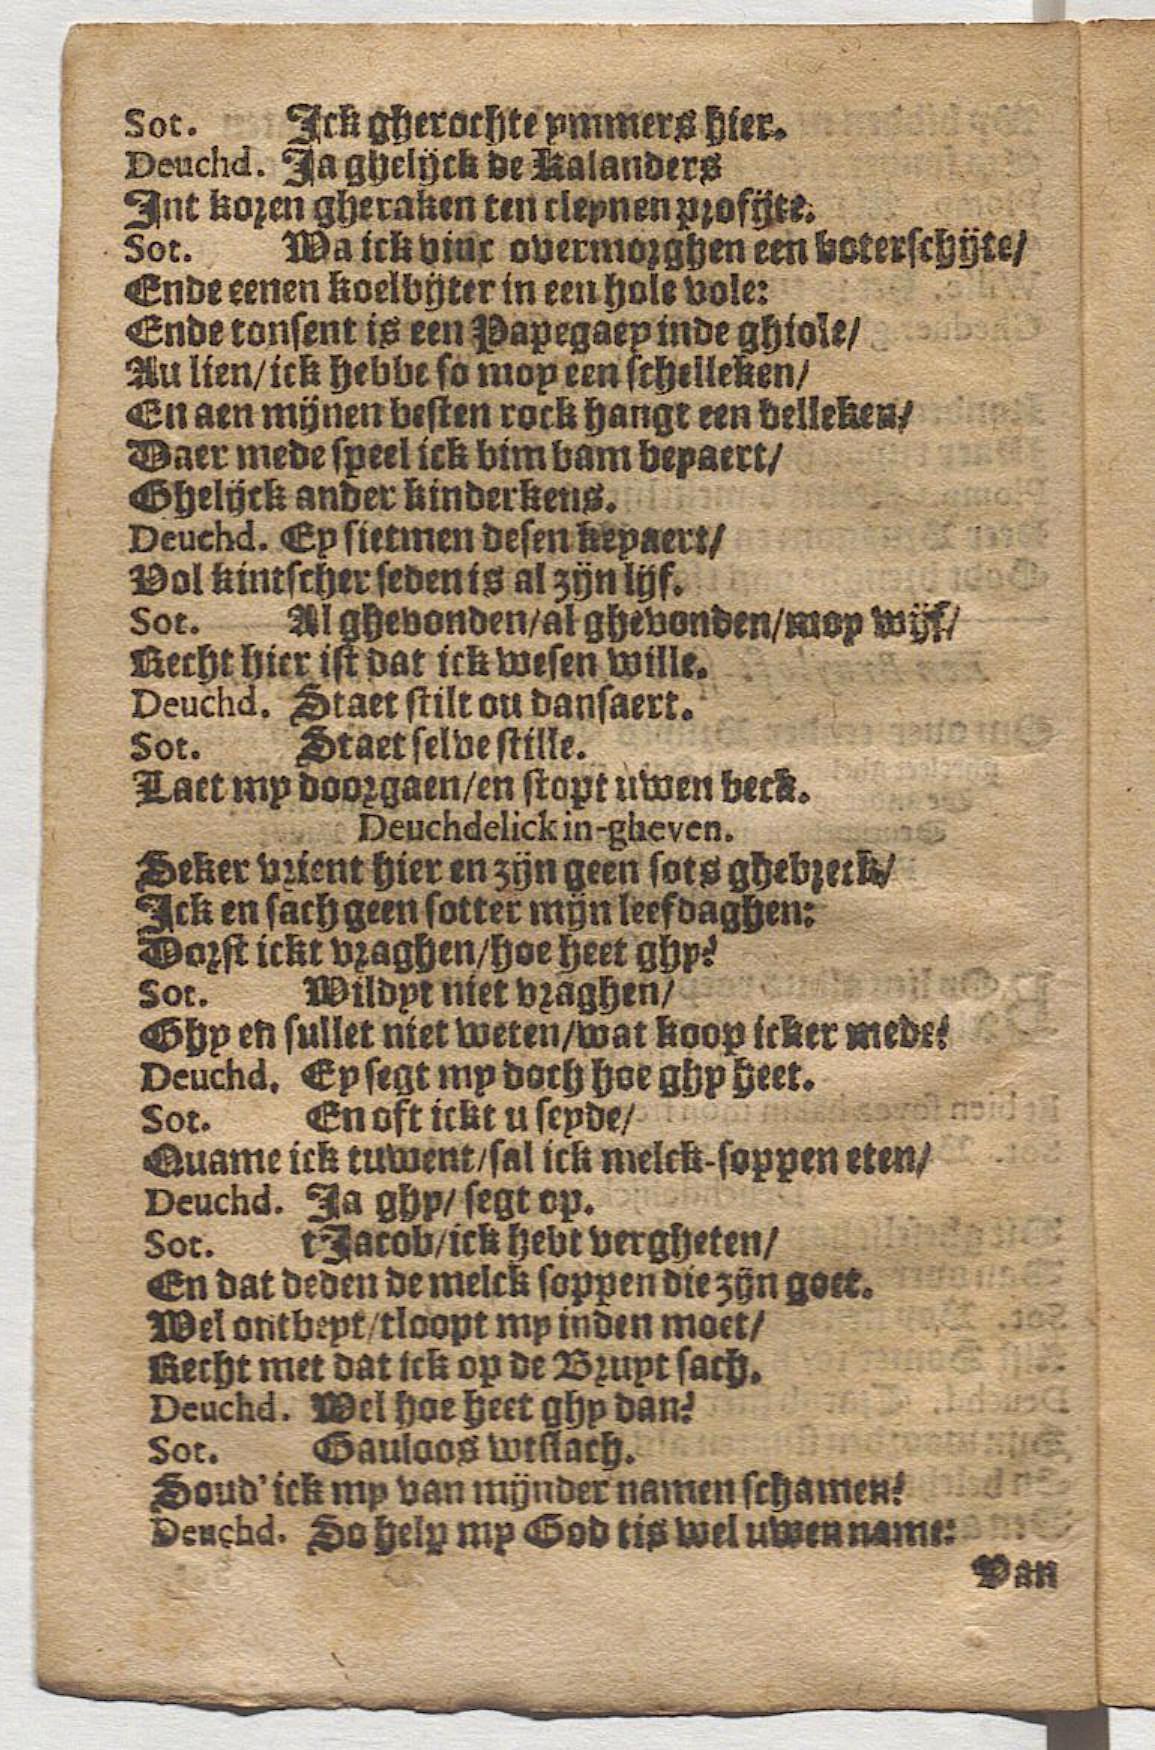 Sot. Ick gherochte ymmers hier.
Deuchd. Ja ghelijck de Kalanders
Int koren gheraken ten cleynen profijte.
Sot. Wa ick vinc overmorghen een boterschijte/
Ende eenen koelbijter in een hole vole:
Ende tonsent is een Papegaey inde ghiole/
Au lien/ick hebbe so moy een schelleken/
En aen mijnen besten rock hangt een belleken/
Daer mede speel ick bim bam beyaert/
Ghelijck ander kinderkens.
Deuchd. Ey sietmen desen keyaert/
Vol kintscher seden is al zijn lijf.
Sot. Al ghevonden/al ghevonden/moy wijf/
Recht hier ist dat ick wesen wille.
Deuchd. Staet stilt ou dansaert.
Sot. Staet selve stille.
Laet my doorgaen/en stopt uwen beck.
Deuchdelick in-gheven.
Seker vrient hier en zijn geen sots ghebreck/
Ick en sach geen sotter mijn leefdaghen:
Dorst ickt vraghen/hoe heet ghy?
Sot. Wildyt niet vraghen/
Ghy en sullet niet weten/wat koop icker mede?
Deuchd. Ey segt my doch hoe ghy heet.
Sot. En oft ickt u seyde/
Quame ick tuwent/sal ick melck-soppen eten/
Deuchd. Ja ghy/ segt op.
Sot. t'Jacob/ick hebt vergheten/
En dat deden de melck soppen die zijn goet.
Wel ontbeyt/tloopt my inden moet/
Recht met dat ick op de Bruyt sach.
Deuchd. Wel hoe heet ghy dan?
Sot. Gauloos wtslach.
Soud' ick my van mijnder namen schamen?
Deuchd. So help my God tis wel uwen name:
Van